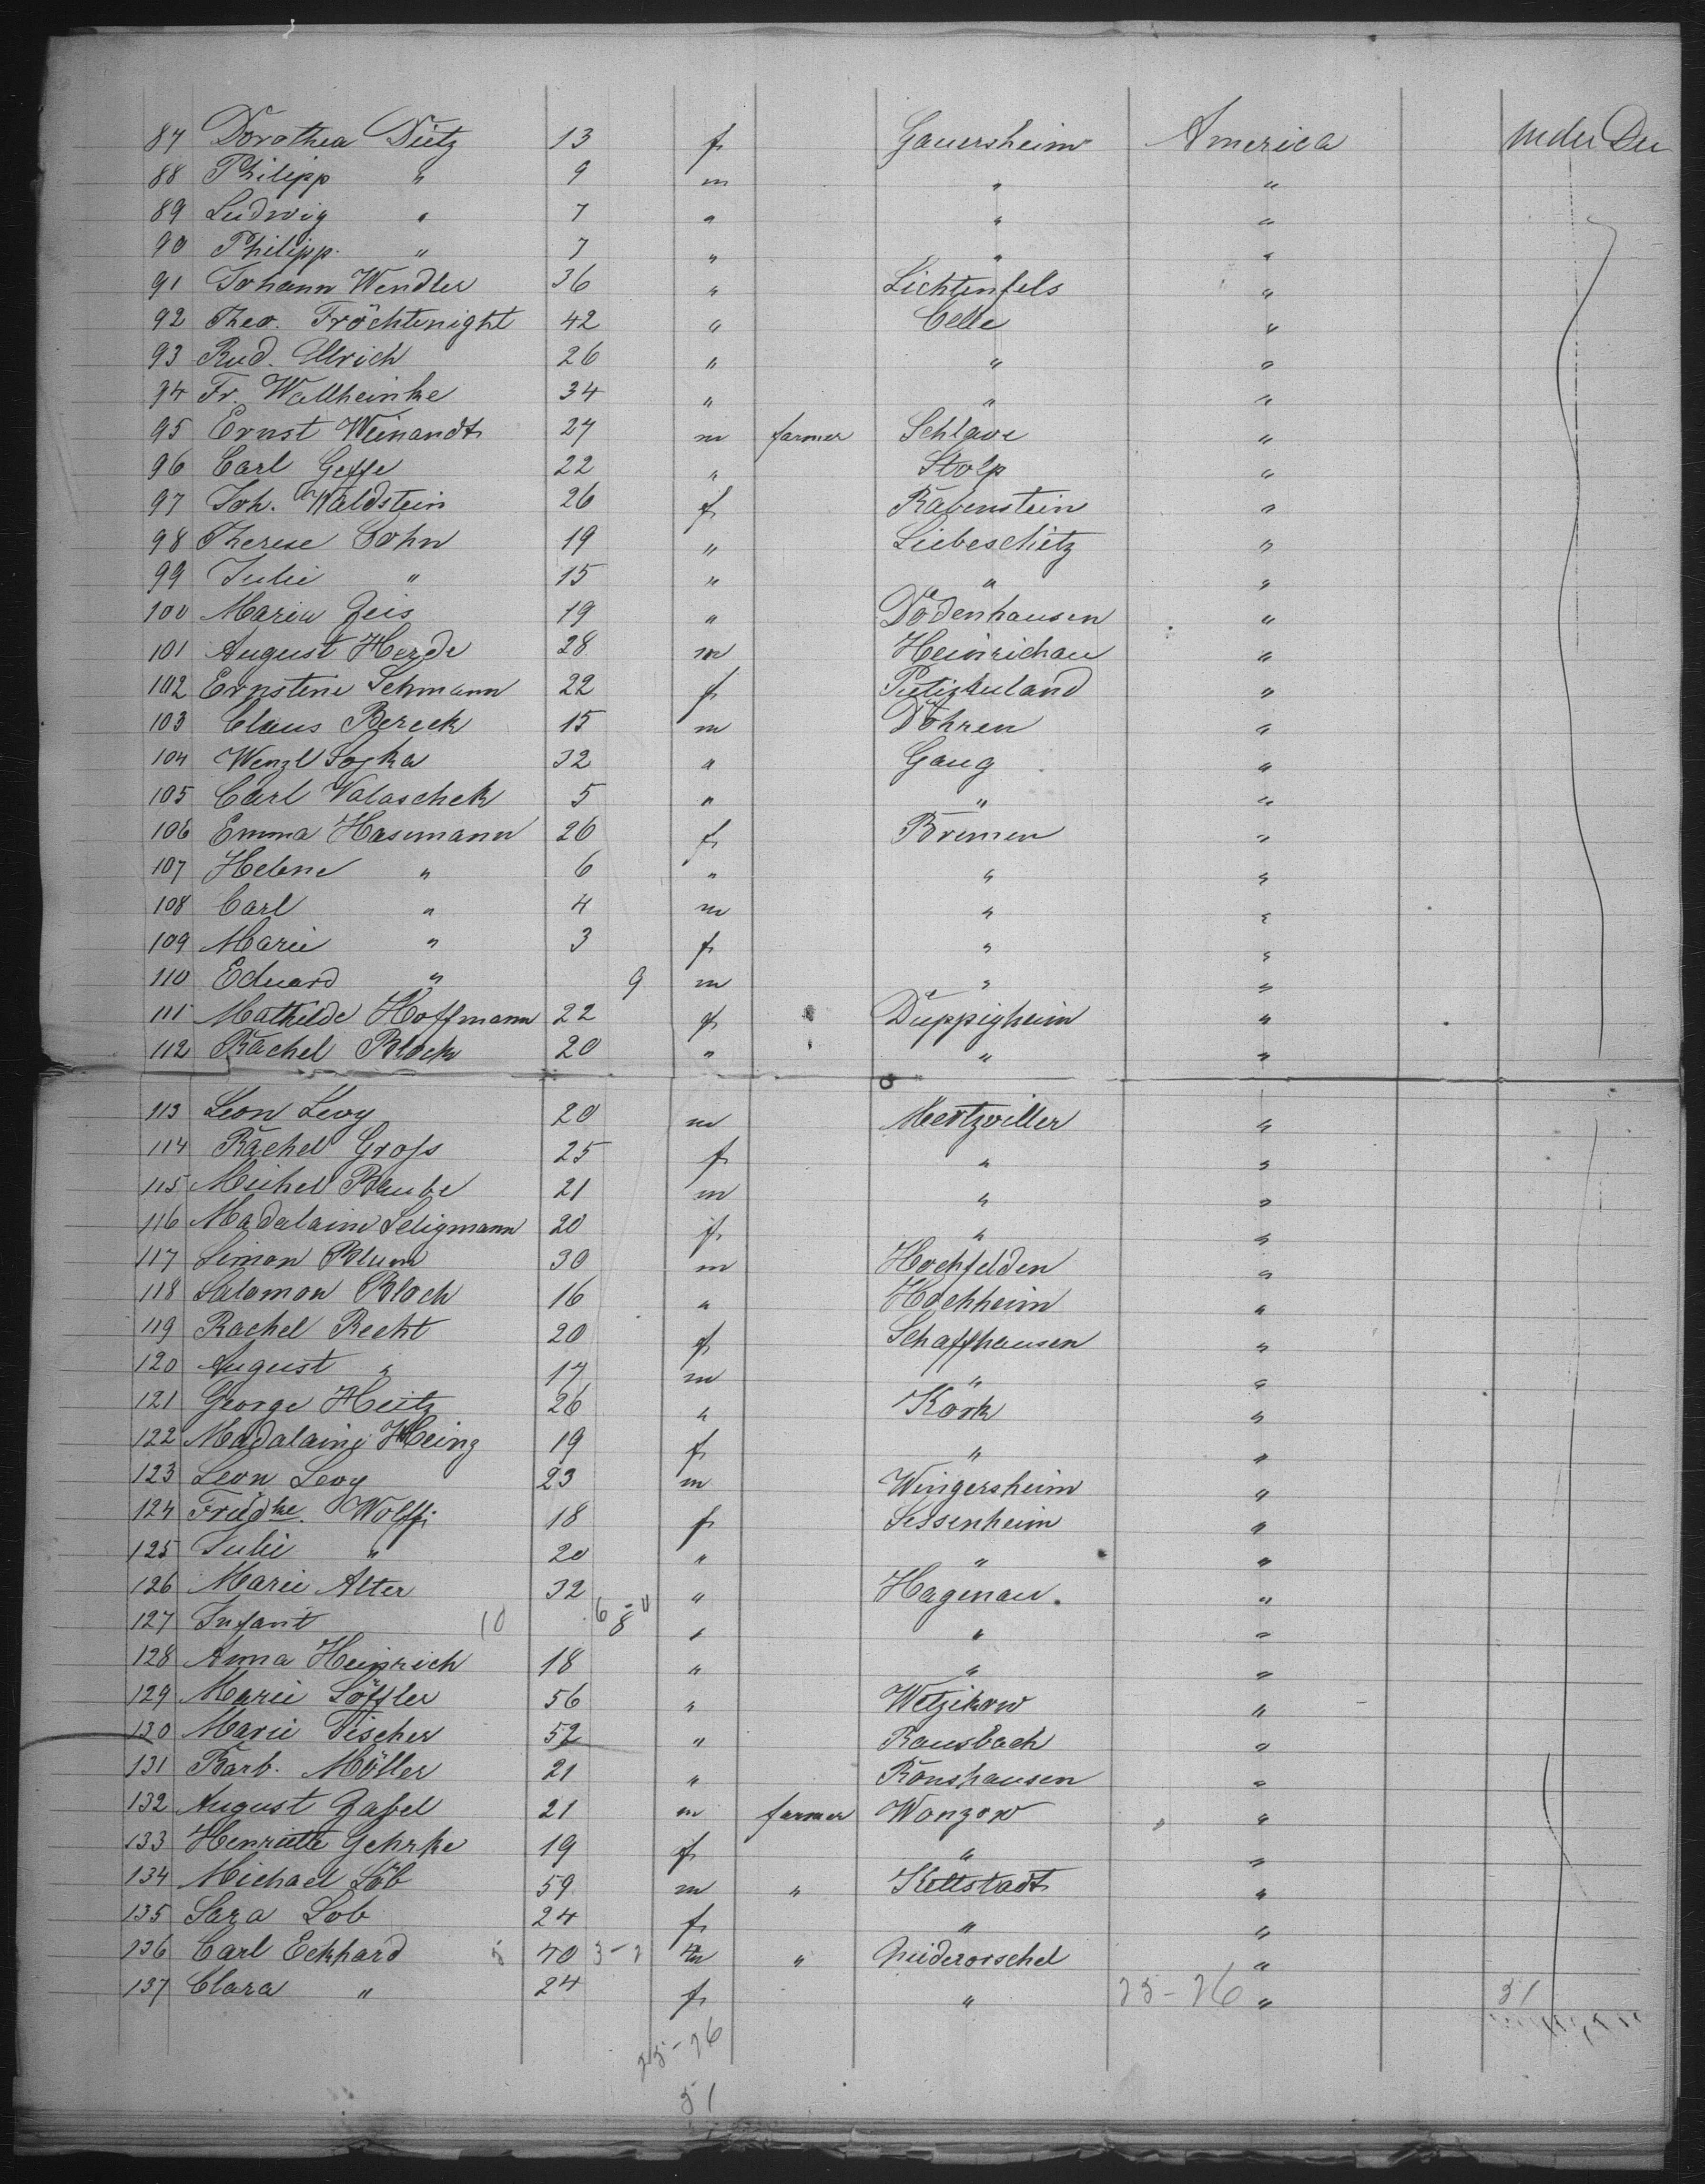 87 Dorothea Dietz 13 f Gauersheim America under De
88 Philipp " 9 m " "
89 Ludwig " 7 " " "
90 Philipp " 7 " " "
91 Johann Wendler 36 " Lichtenfels "
92 Theo. Fröchtenight 42 " Celle "
93 Rud. Ullrich 26 " " "
94 Fr. Wallheinke 34 " " "
95 Ernst Weinandt 27 m farmer Schlawe "
96 Carl Geffe 22 " Stolp "
97 Joh. Waldstein 26 f Rabenstein "
98 Therese Cohn 19 " Liebeschitz "
99 Julie " 15 " " "
100 Maria Zeis 19 " Dodenhausen "
101 August Herde 28 m Heinrichau "
102 Ernstine Lehmann 22 f "
103 Claus Bereck 15 m Döhren "
104 Wenzl Sojka 32 " Gang "
105 Carl Valaschek 5 " " "
106 Emma Hasemann 26 f Bremen "
107 Helene " 6 " " "
108 Carl " 4 m " "
109 Marie " 3 f " "
110 Eduard " 9 m " "
111 Mathilde Hoffmann 22 f Düppigheim "
112 Rachel Block 20 " " "
113 Leon Levy 20 m Mertzviller "
114 Rachel Gross 25 f " "
115 Michel 21 m " "
116 Madalaine Seligmann 20 f " "
117 Simon Blum 30 m Hochfelden "
118 Salomon Bloch 16 " Hochheim "
119 Rachel Recht 20 f Schaffhausen "
120 August " 17 m " "
121 George Heitz 26 " Kork "
122 Madalaine Heinz 19 f " "
123 Leon Levy 23 m Wingersheim "
124 Friedke. Wolff 18 f Sessenheim "
125 Julie " 20 " " "
126 Marie Alter 32 " Hagenau. "
127 Infant 10 6 8 " " "
128 Anna Heinrich 18 " " "
129 Marie Löffler 56 " Wetzikow "
130 Marie Fischer 52 " Ransbach "
131 Barb. Möller 21 " Ronshausen "
132 August Zabel 21 m farmer Wonzow "
133 Henriette Gehrke 19 f " "
134 Michael Löb 59 m " Kettstadt "
135 Sara Lob 24 f " "
136 Carl Eckhard 40 m " Neiderorschel "
137 Clara " 24 f " 25-26 " 51
25-26
51